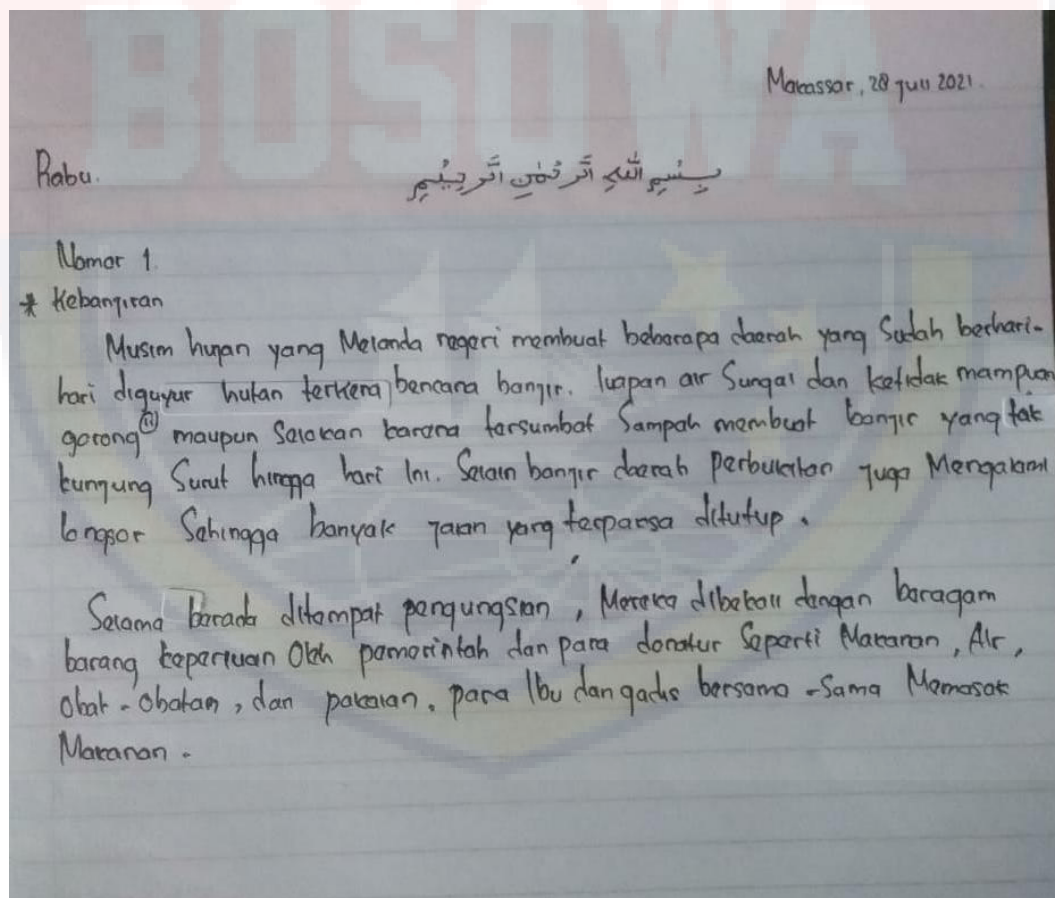 BOSOWA
Makassar, 28 Juli 2021.
Rabu.
بِسْمِ اللَّهِ الرَّحْمٰنِ الرَّحِيْمِ
Nomor 1.
* Kebanjiran
Musim hujan yang Melanda negeri membuat beberapa daerah yang Sudah berhari-
hari diguyur hutan terkena bencana banjir. luapan air Sungai dan ketidak mampuan
gorong" maupun Salokan karena tersumbat Sampah membuat banjir yang tak
kunjung Surut hingga hari Ini. Selain banjir daerah perbukitan juga Mengalami
longsor Sehingga banyak jalan yang terpaksa ditutup.
Selama berada ditempat pengungsian, Mereka dibekali dengan beragam
barang keperluan Oleh pemerintah dan para donatur Seperti Makanan, Air,
obat-obatan, dan pakaian. para Ibu dan gadis bersama-Sama Memasak
Makanan.